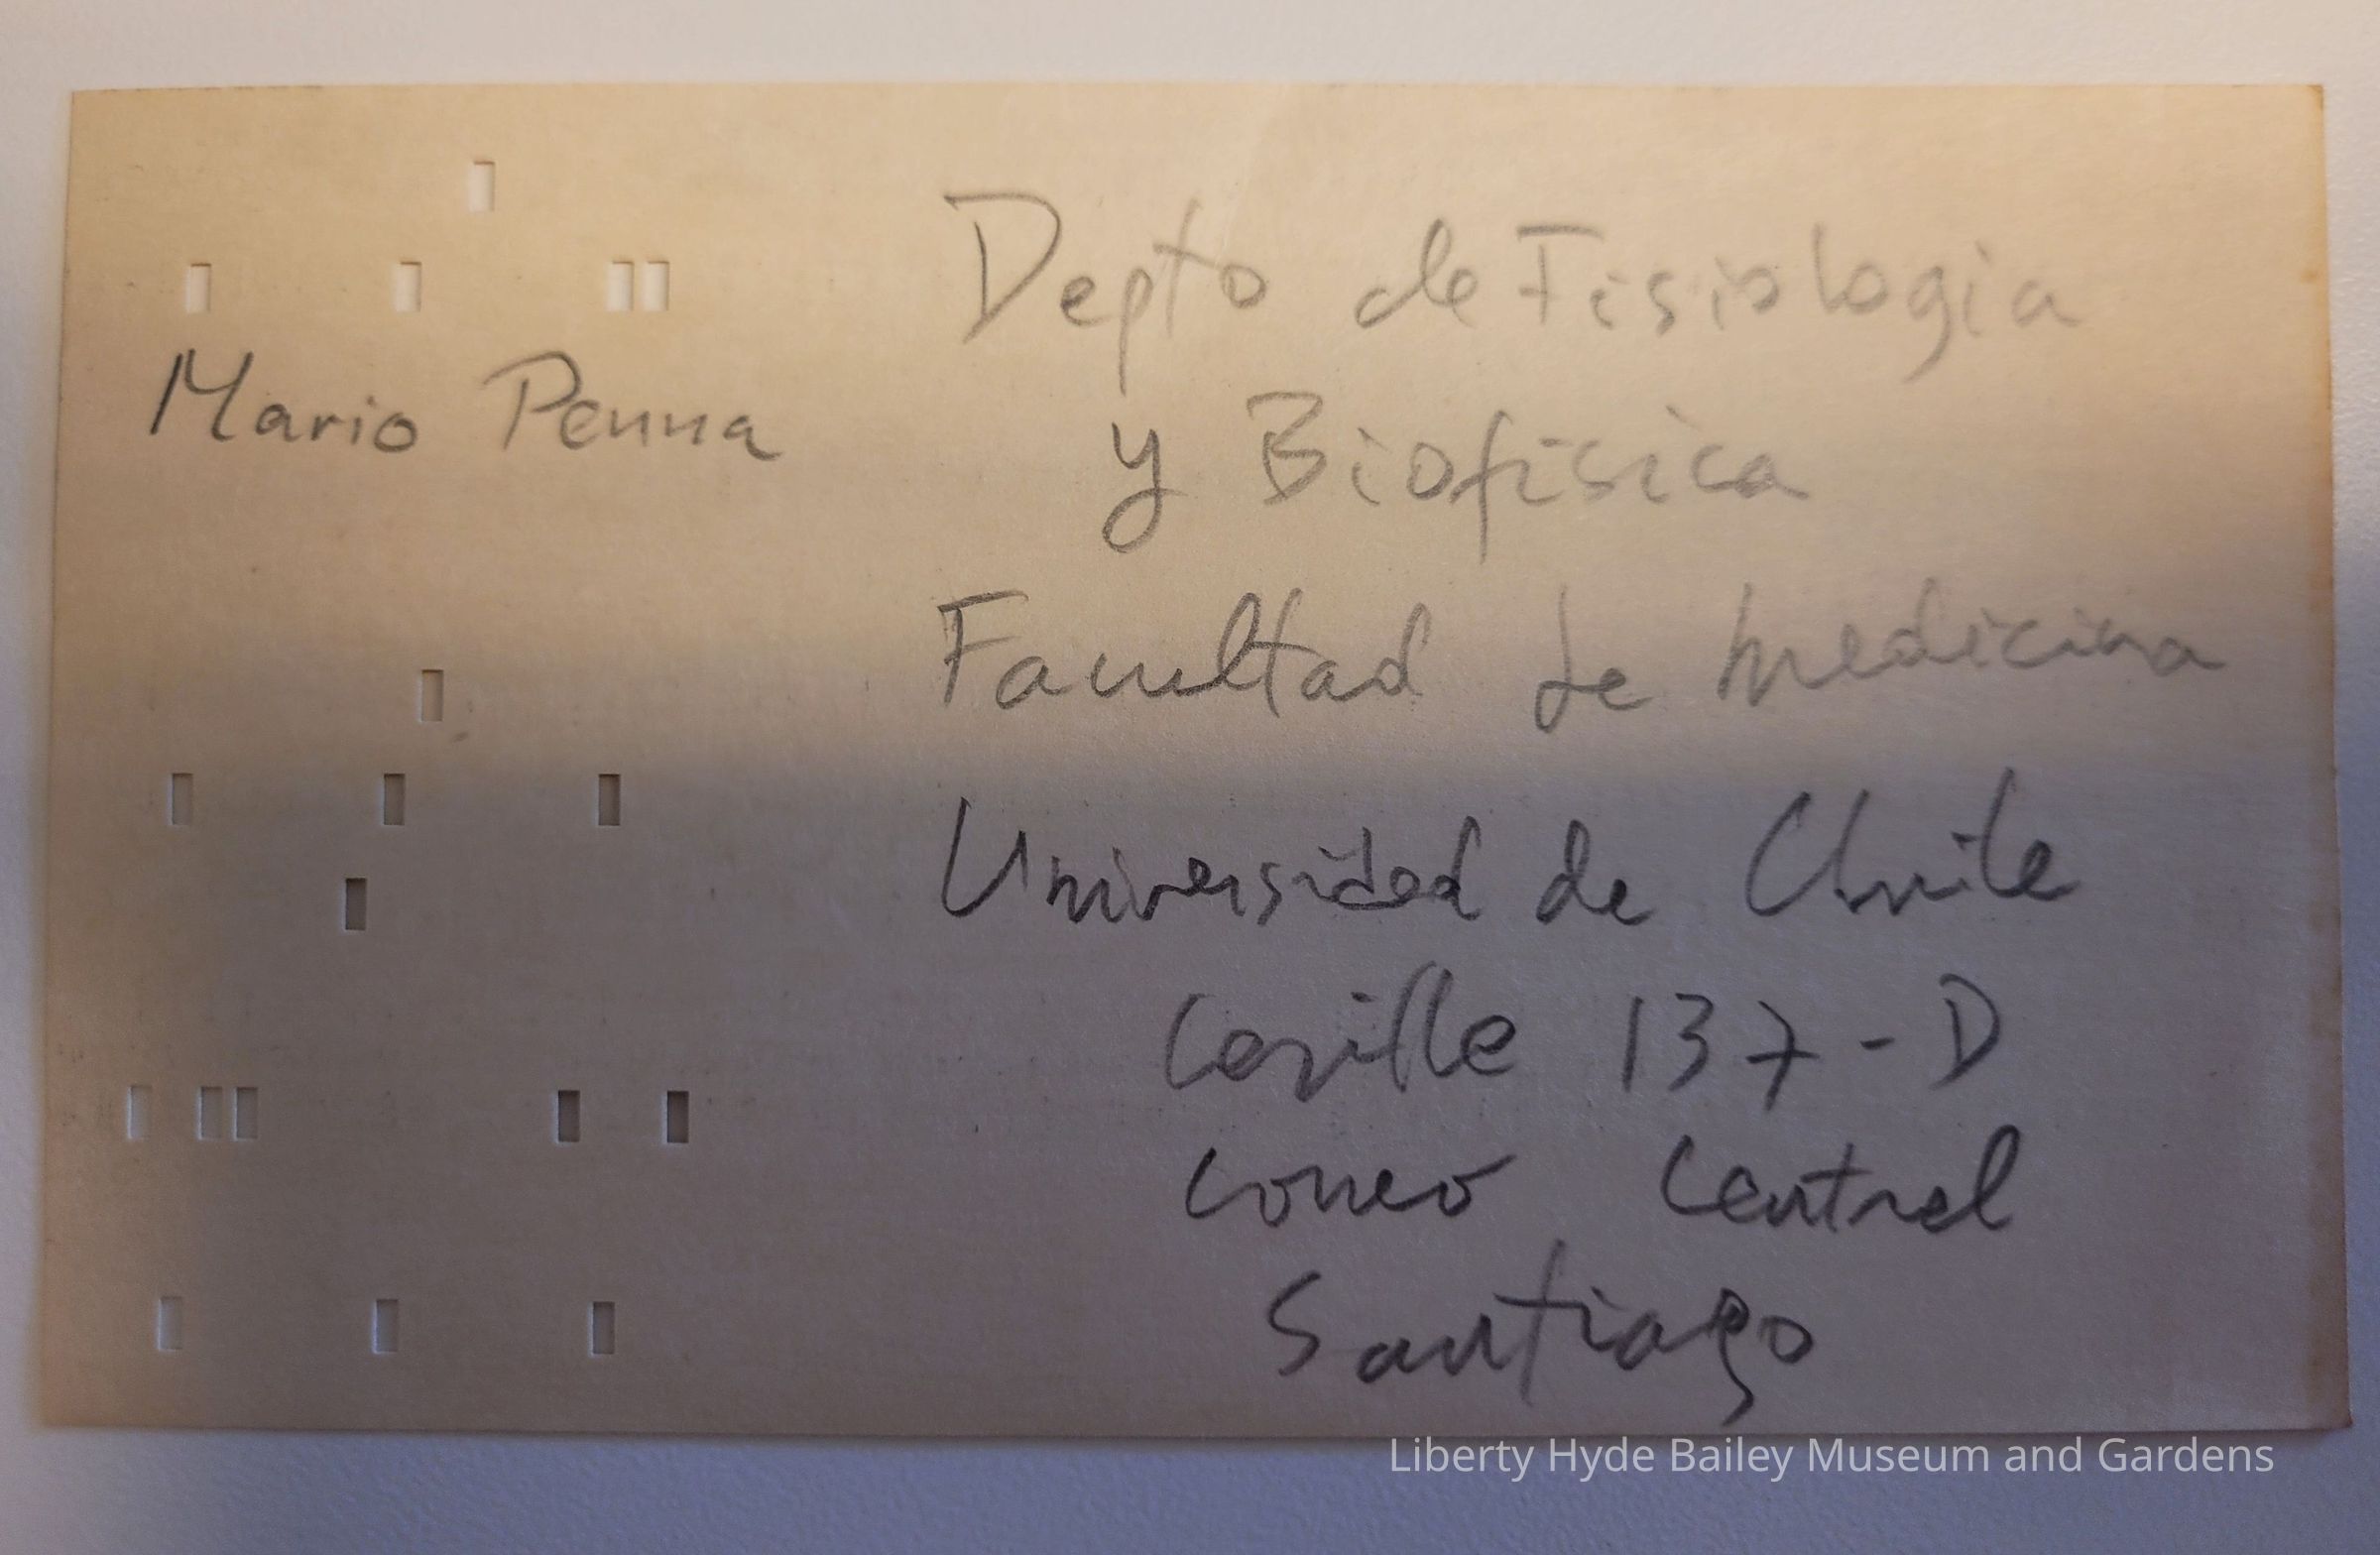 Mario Penna
Depto de Fisiologia
y Biofisica
Facultad de medicina
Universidad de Chile
Casilla 137-D
Correo Central
Santiago
Liberty Hyde Bailey Museum and Gardens